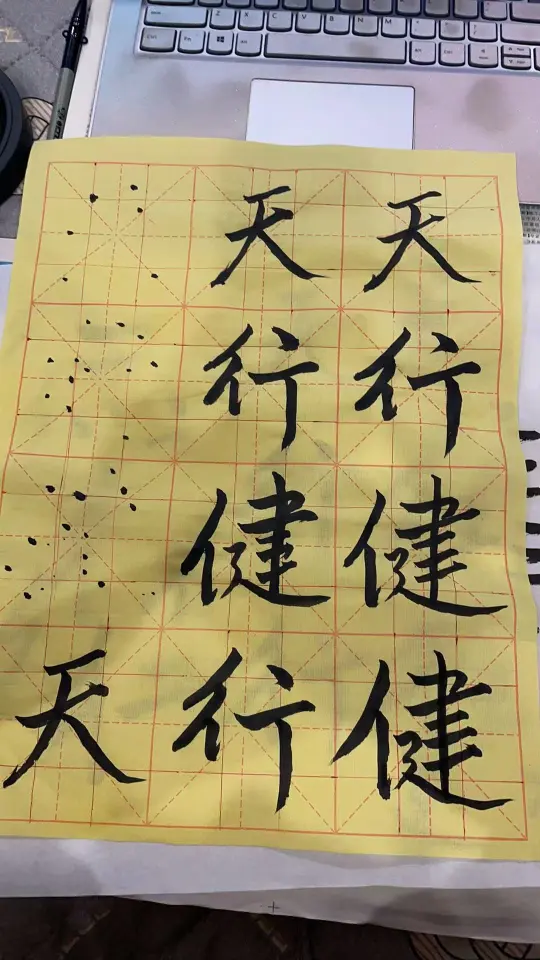 天 天
行 行
健 健
天 行 健